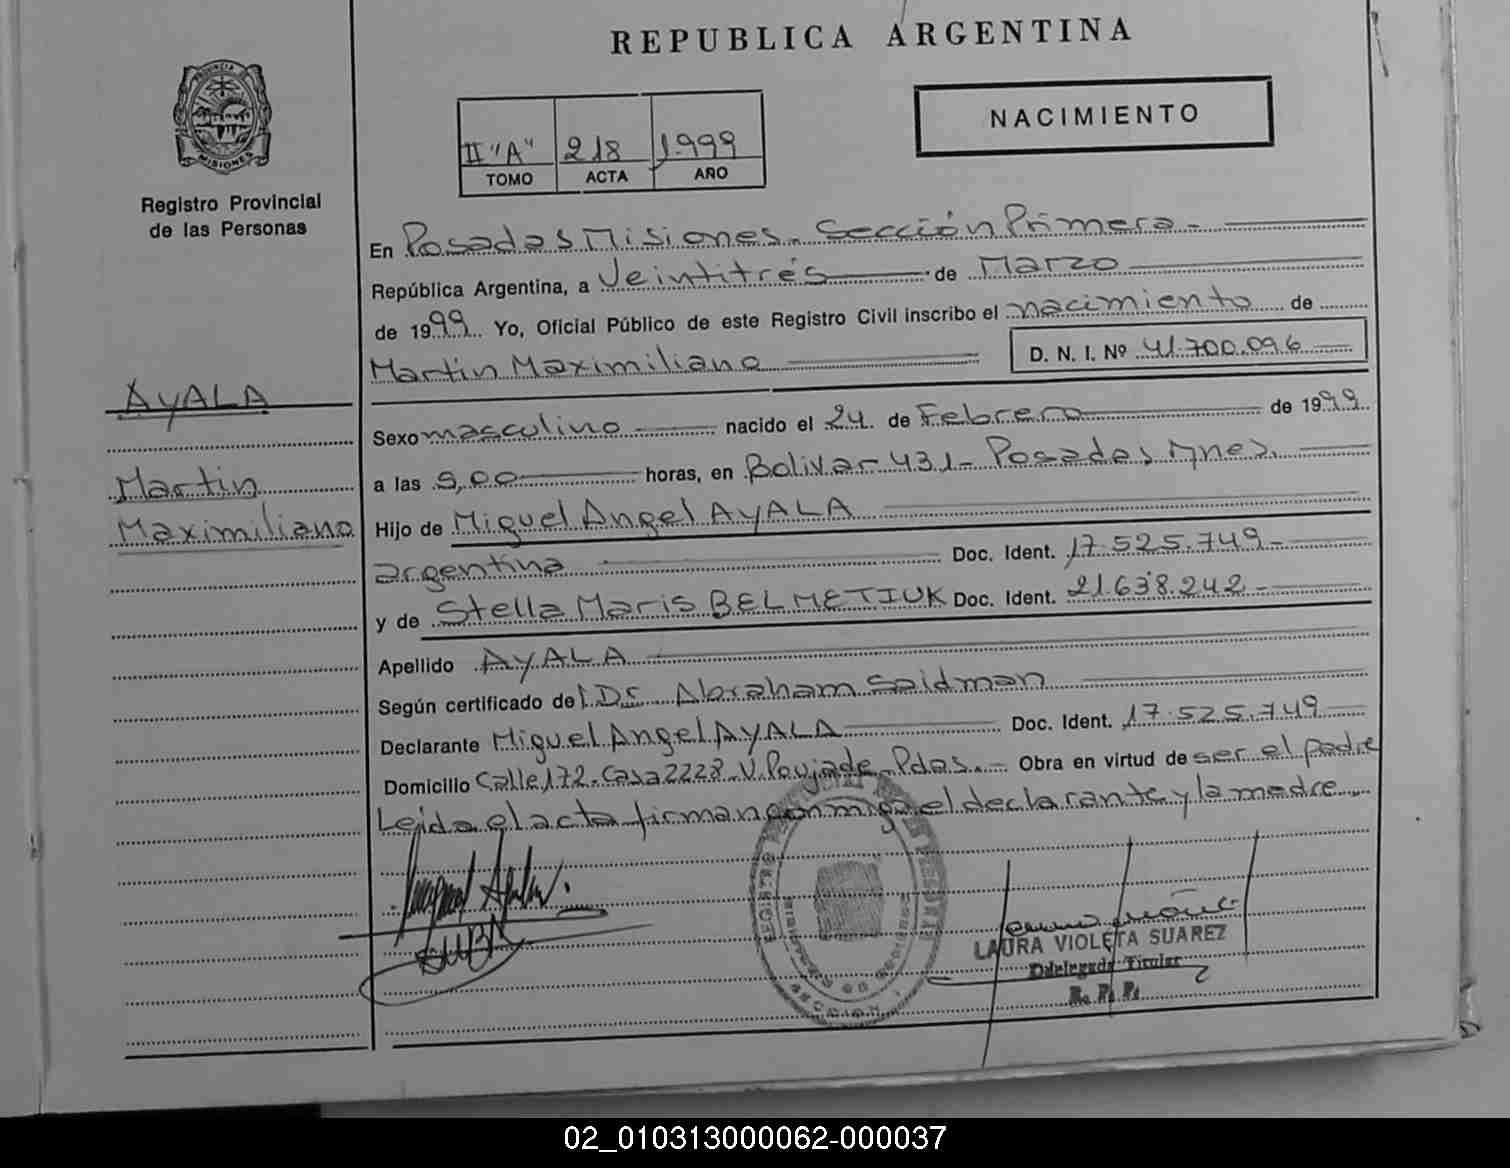 REPUBLICA ARGENTINA
NACIMIENTO
PROVINCIA DE
MISIONES
Registro Provincial
de las Personas
II "A" 218 1999
TOMO ACTA AÑO
En Posadas Misiones. Sección Primera -
República Argentina, a Veintitrés de Marzo
de 1999 Yo, Oficial Público de este Registro Civil inscribo el nacimiento de
Martin Maximiliano
D. N. I. Nº 41.700.096
AYALA
Martin
Maximiliano
Sexo masculino nacido el 24 de Febrero de 1999
a las 9,00 horas, en Bolivar 431 - Posadas, Mnes.
Hijo de Miguel Angel AYALA
argentina Doc. Ident. 17.525.749 -
y de Stella Maris BELMETIUK Doc. Ident. 21.638.242 -
Apellido AYALA
Según certificado del Dr. Abraham Saidman
Declarante Miguel Angel AYALA Doc. Ident. 17.525.749
Domicilio Calle 172 - Casa 2228 - V. Poujade - Pdas. - Obra en virtud de ser el padre
Leida el acta firman conmigo el declarante y la madre
LAURA VIOLETA SUAREZ
Delegada Titular
R. P. P.
02_010313000062-000037